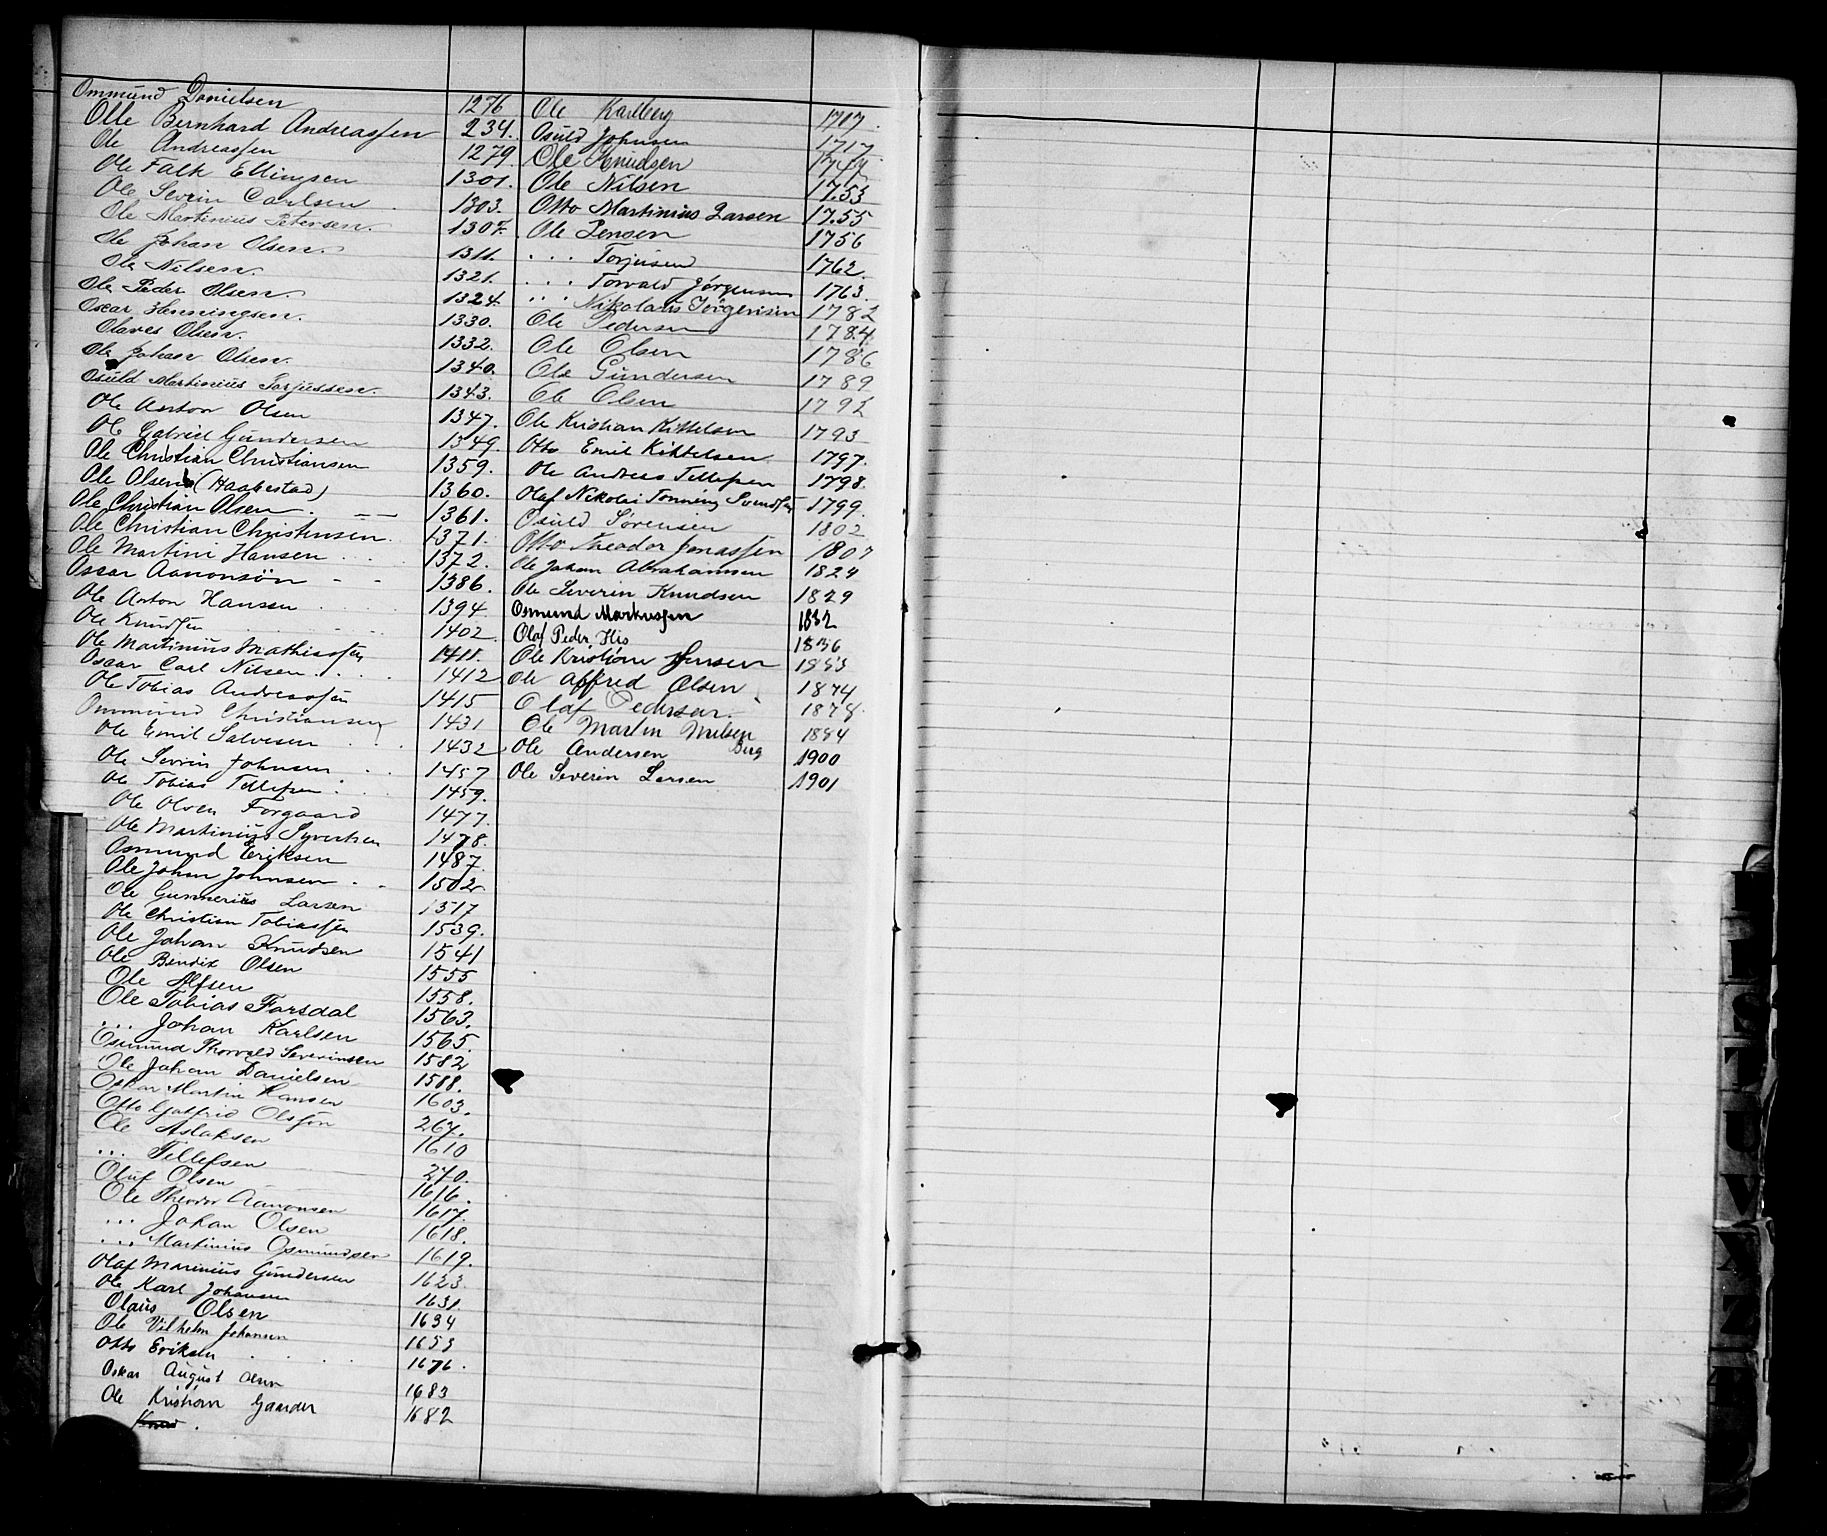 Ommund Danielsen 1276
Olle Bernhard Andreassen 234.
Ole Andreassen 1279
Ole Falk Ellingsen 1301.
Ole Severin Carlsen 1303.
Ole Martinius Petersen. 1307.
Ole Johan Olsen. 1311.
Ole Nilsen. 1321.
Ole Peder Olsen. 1324.
Oscar Henningsen. 1330.
Olaves Olsen. 1332.
Ole Johan Olsen. 1340.
Osuld Martinius Torjussen. 1343.
Ole Anton Olsen 1347.
Ole Gabriel Gundersen 1349.
Ole Christian Christiansen 1359.
Ole Olsen (Haabestad) 1360.
Ole Christian Olsen. 1361.
Ole Christian Christensen. 1371.
Ole Martin Hansen 1372.
Oscar Aanonsön 1386.
Ole Anton Hansen 1394
Ole Knudsen 1402
Ole Martinius Mathiassen 1411.
Oscar Carl Nilsen 1412
Ole Tobias Andreassen 1415
Ommund Christiansen 1431
Ole Emil Salvesen 1432
Ole Sevrin Johnsen 1457
Ole Tobias Tellefsen. 1459.
Ole Olsen Forgaard 1477.
Ole Martinius Syvertsen 1478.
Osmund Eriksen 1487
Ole Johan Johnsen 1502
Ole Gunnerius Larsen 1517
Ole Christian Tobiassen 1539.
Ole Johan Knudsen 1541
Ole Bendix Olsen 1555
Ole Alfsen 1558.
Ole Tobias Farsdal 1563.
... Johan Karlsen 1565.
Osmund Thorvald Severinsen 1582
Ole Johan Danielsen 1588.
Oskar Martin Hansen 1603.
Otto Gotfrid Olsson 267.
Ole Aslaksen 1610
... Tellefsen 270.
Oluf Olsen 1616.
Ole Theodor Aanonsen 1617.
... Johan Olsen 1618.
... Martinius Osmundsen 1619.
Olaf Marinius Gundersen 1623
Ole Karl Johansen 1631.
Olaus Olsen 1634
Ole Vilhelm Johansen 1653
Otto Eriksen 1676.
Oskar August Olsen 1683
Ole Kristian Gaarder 1682
Ole Karlberg 1717.
Osuld Johnsen 1717
Ole Knudsen
Ole Nilsen 1753
Otto Martinius Larsen 1755
Ole Jensen 1756
... Torjusen 1762.
... Torvald Jørgensen 1763.
... Nikolaus Jörgensen 1782
Ole Pedersen 1784.
Ole Olsen 1786
Ole Gundersen 1789
Ole Olsen 1792
Ole Kristian Kittelsen 1793
Otto Emil Kittelsen 1797.
Ole Andreas Tellefsen 1798.
Olaf Nikolai Tønning Svendsen 1799.
Osuld Sørensen 1802
Otto Theodor Jonassen 1807
Ole Johan Abrahamsen 1824
Ole Severin Knudsen 1829
Osmund Markussen 1832
Olaf Peder His 1836
Ole Kristian Jensen 1853
Ole Alfred Olsen 1874
Olaf Pedersen. 1878.
Ole Martin Nilsen Berg 1884
Ole Andersen 1900
Ole Severin Larsen 1901
R
S
T
U
V
X
Z
Æ